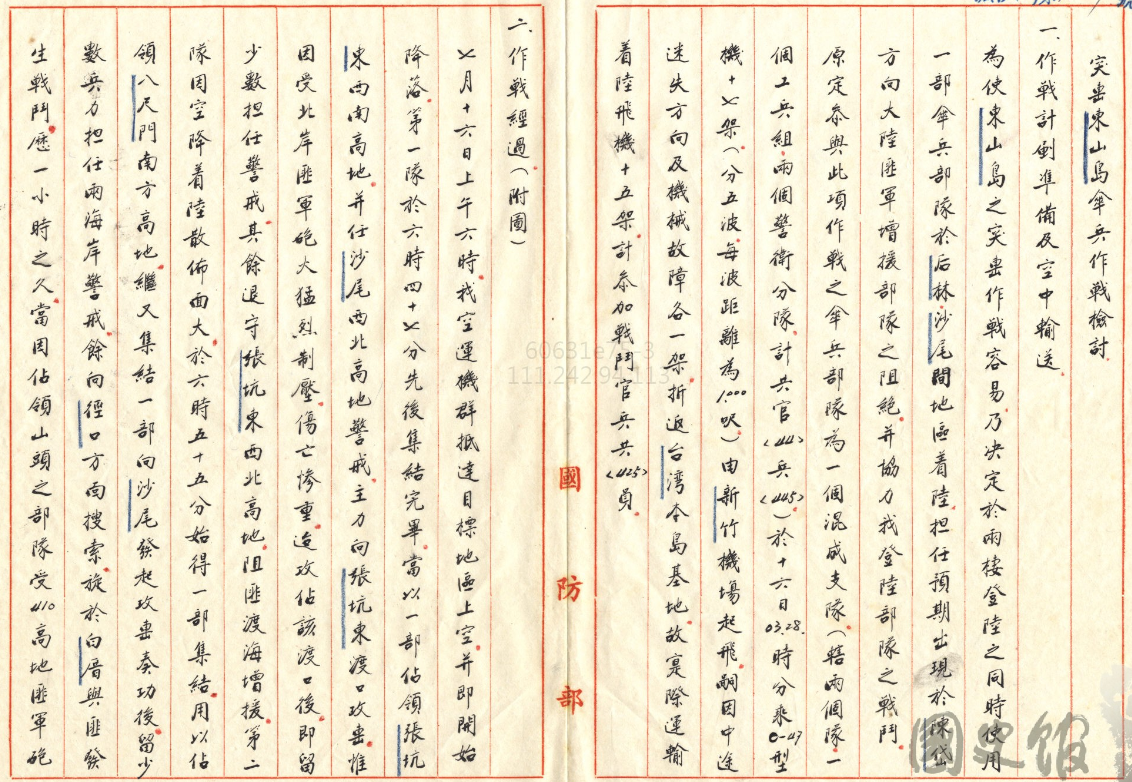 突擊東山島傘兵作戰檢討
一、作戰計劃準備及空中輸送
為使東山島之突擊作戰容易乃決定於兩棲登陸之同時使用
一部傘兵部隊於后林沙尾間地區着陸担任預期出現於陳岱
方向大陸匪軍增援部隊之阻絕并協力我登陸部隊之戰鬥
原定參與此項作戰之傘兵部隊為一個混成支隊（轄兩個隊一
個工兵組兩個警衛分隊計共官(44)兵(445)於十六日03.28.時分乘C-47型
機十七架（分五波每波距離為1,000呎）由新竹機場起飛嗣因中途
迷失方向及機械故障各一架折返台灣本島基地故實際運輸
着陸飛機十五架計參加戰鬥官兵共(425)員
二、作戰經過（附圖）
七月十六日上午六時我空運機群抵達目標地區上空并即開始
降落第一隊於六時四十七分先後集結完畢當以一部佔領張坑
東西南高地并任沙尾西北高地警戒主力向張坑東渡口攻擊惟
因受北岸匪軍砲火猛烈制壓傷亡慘重迨攻佔該渡口後即留
少數担任警戒其餘退守張坑東西北高地阻匪渡海增援第二
隊因空降着陸散佈面大於六時五十五分始得一部集結用以佔
領八尺門南方高地繼又集結一部向沙尾發起攻擊奏功後留少
數兵力担任兩海岸警戒餘向徑口方面搜索旋於向厝與匪發
生戰鬥歷一小時之久當因佔領山頭之部隊受410高地匪軍砲
國防部
國史館
60631e75-3
111.242.94.113